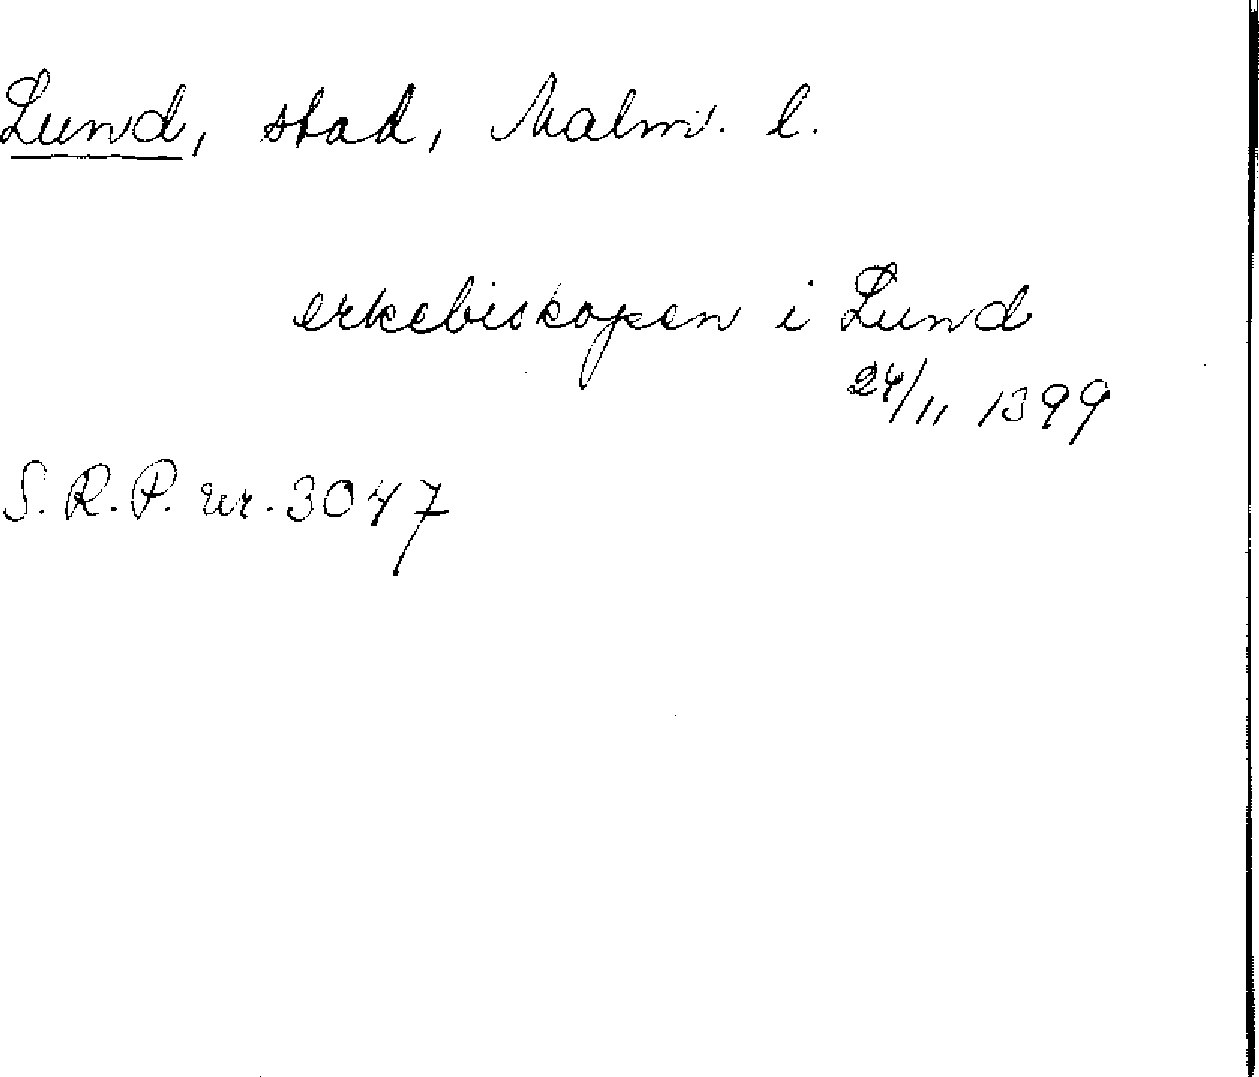 Lund, stad, Malmö. l.
erkebiskopen i Lund
24/11 1399
S.R.P. nr. 3047